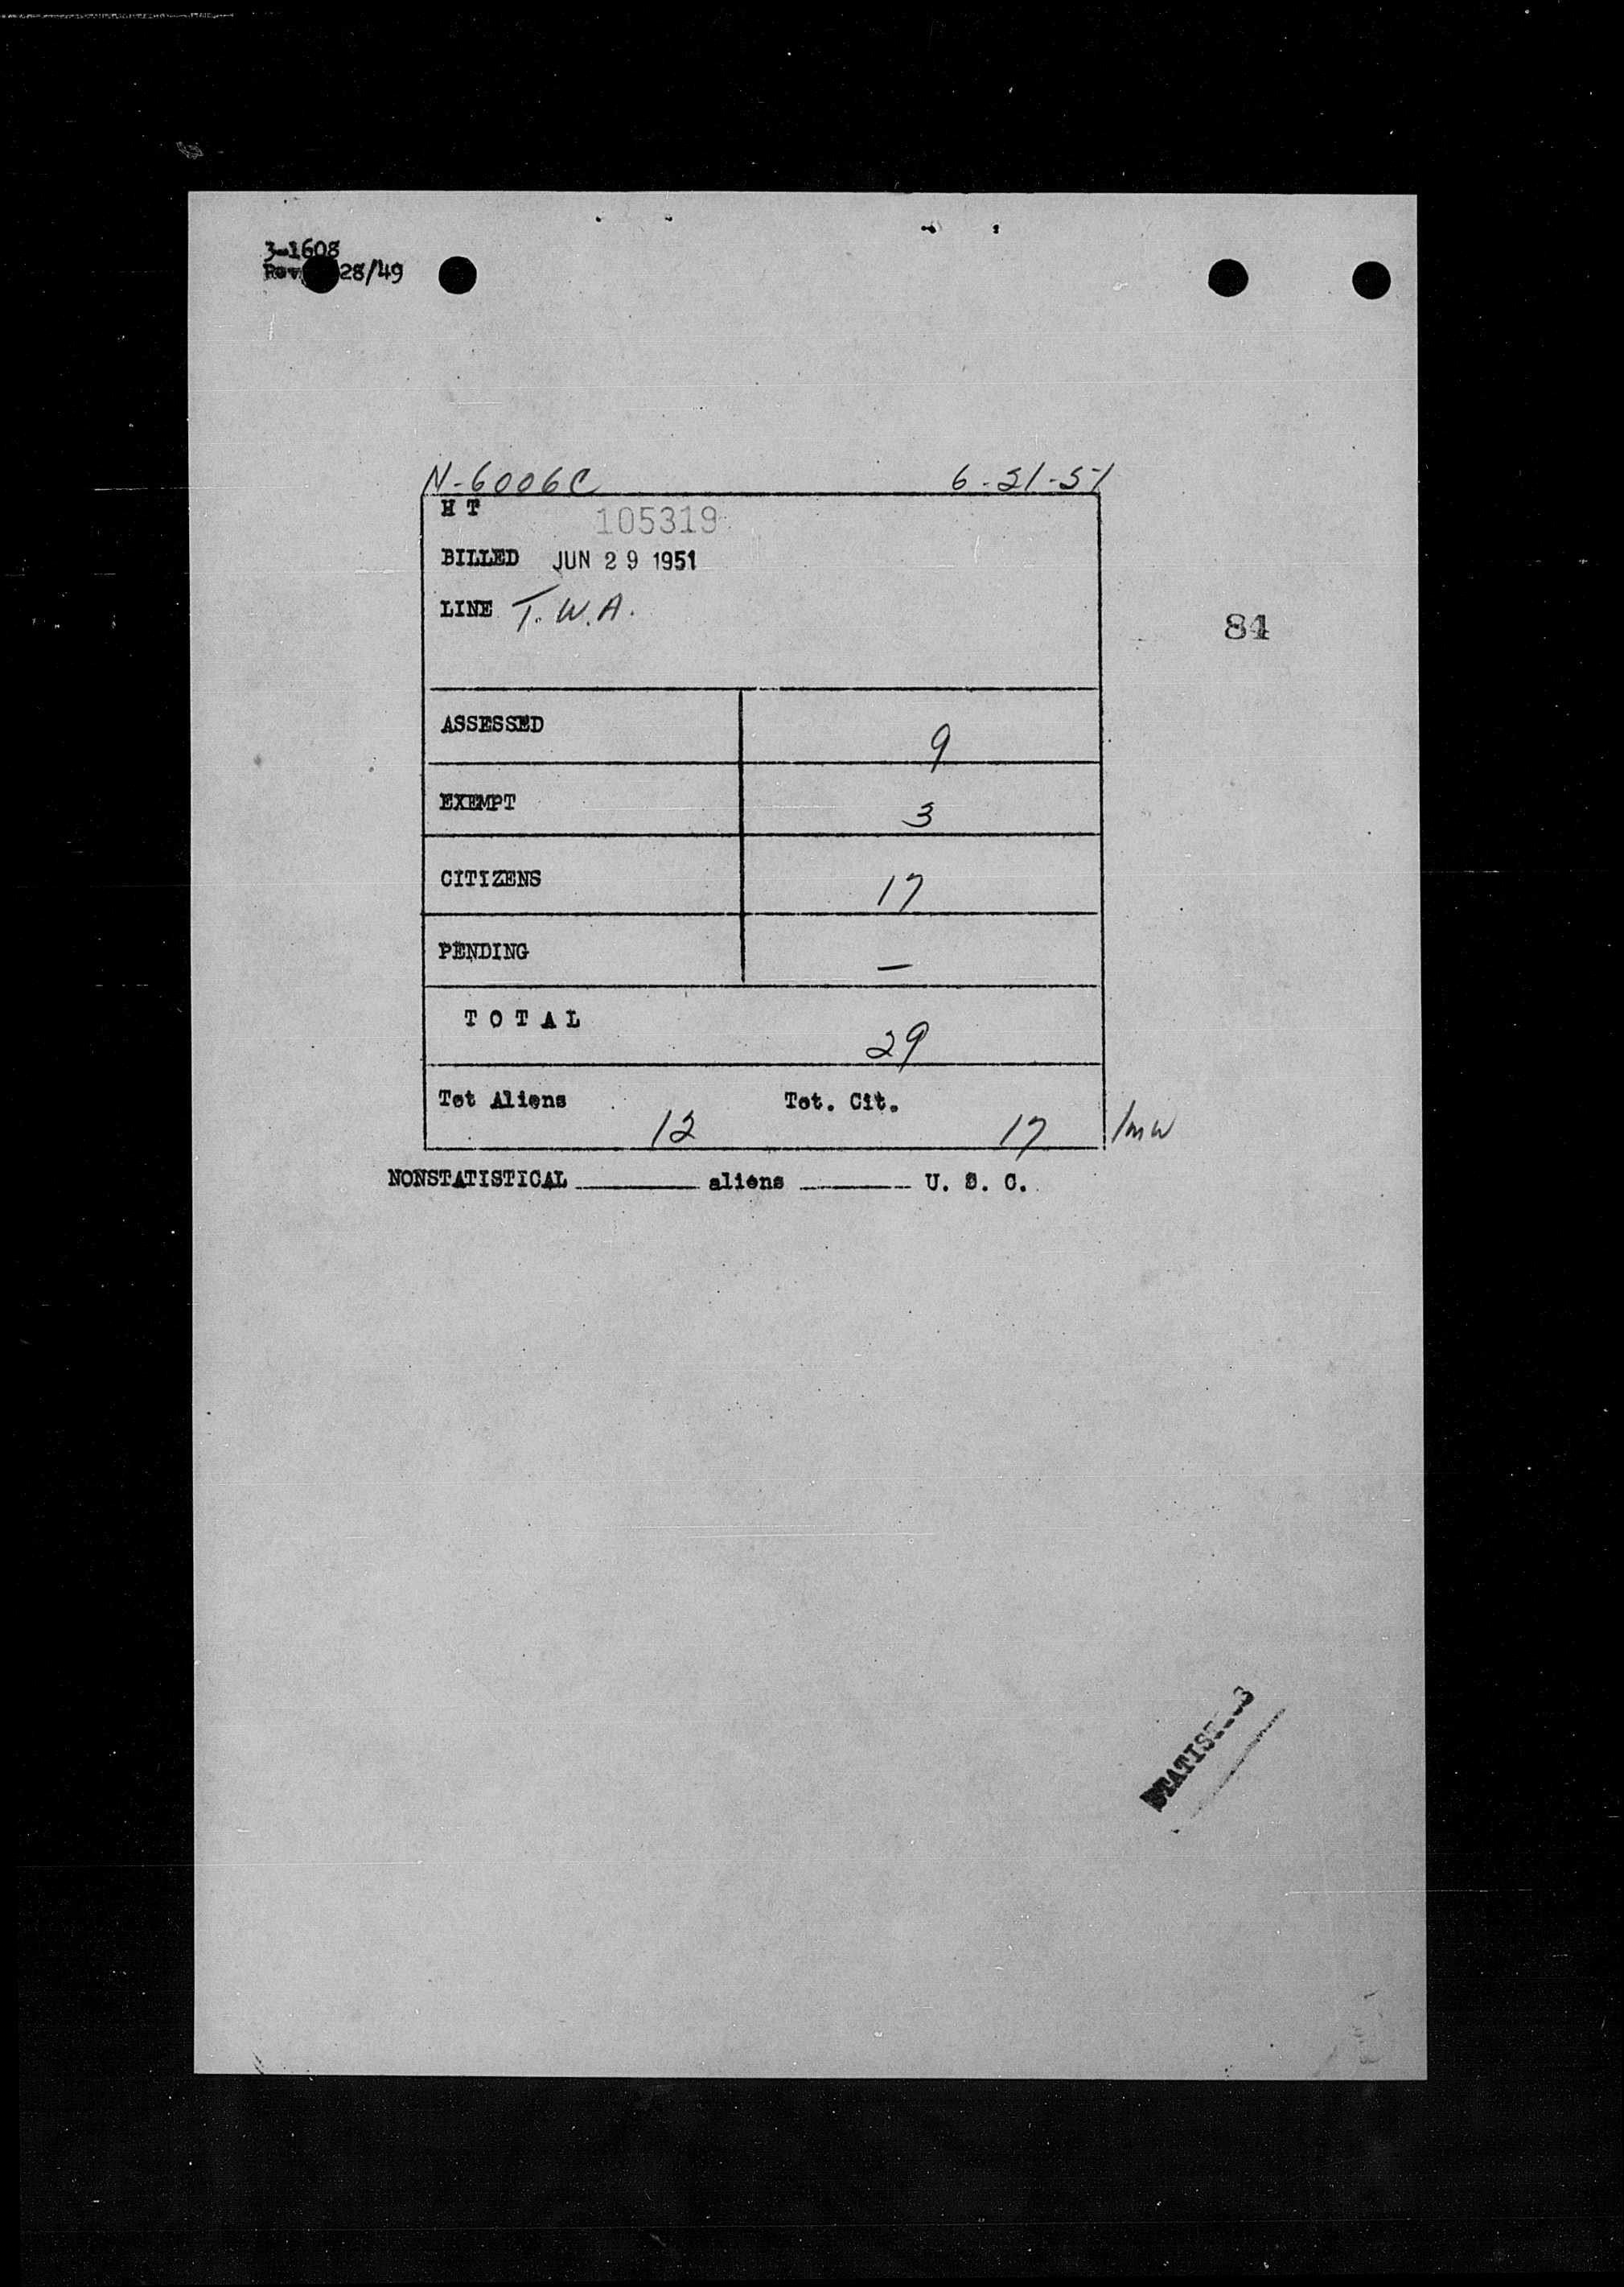 3-1608
Rev. 28/49
N-6006C 6-21-51
H T 105319
BILLED JUN 29 1951
LINE T.W.A.
84
ASSESSED 9
EXEMPT 3
CITIZENS 17
PENDING —
TOTAL 29
Tot Aliens 12 Tot. Cit. 17 /mw
NONSTATISTICAL ______ aliens ______ U. S. C.